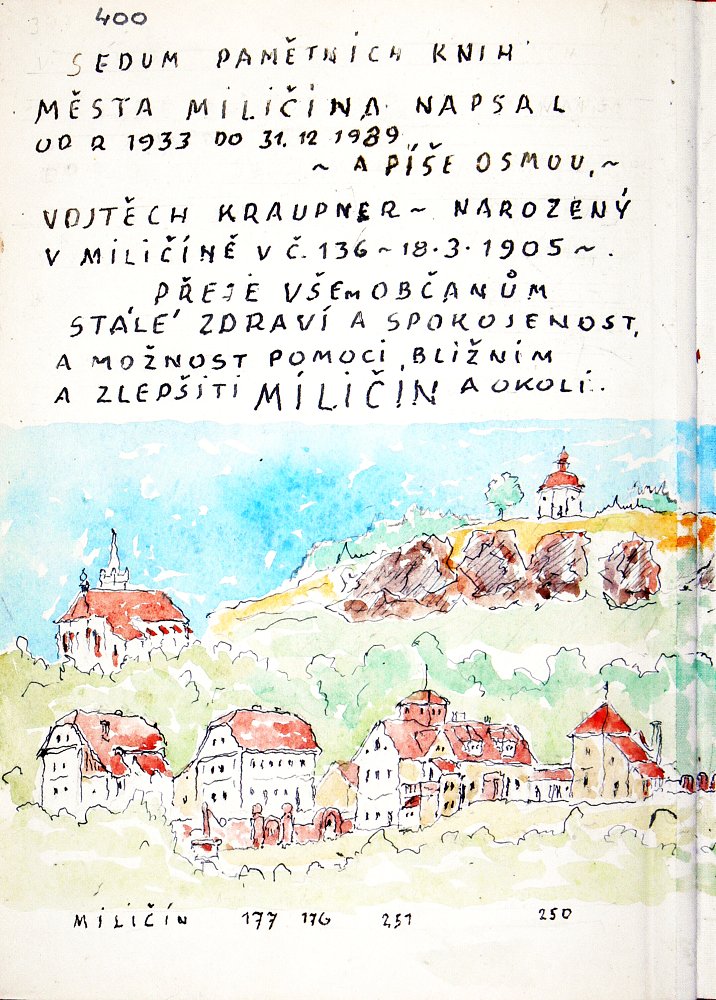 400
SEDUM PAMĚTNÍCH KNIH
MĚSTA MILIČÍNA NAPSAL
OD R 1933 DO 31.12 1989
~ A PÍŠE OSMOU, ~
VOJTĚCH KRAUPNER ~ NAROZENÝ
V MILIČÍNĚ V Č. 136 ~ 18.3.1905 ~ .
PŘEJE VŠEM OBČANŮM
STÁLÉ ZDRAVÍ A SPOKOJENOST,
A MOŽNOST POMOCI BLIŽNÍM
A ZLEPŠITI MILIČÍN A OKOLÍ.
MILIČÍN 177 176 251 250